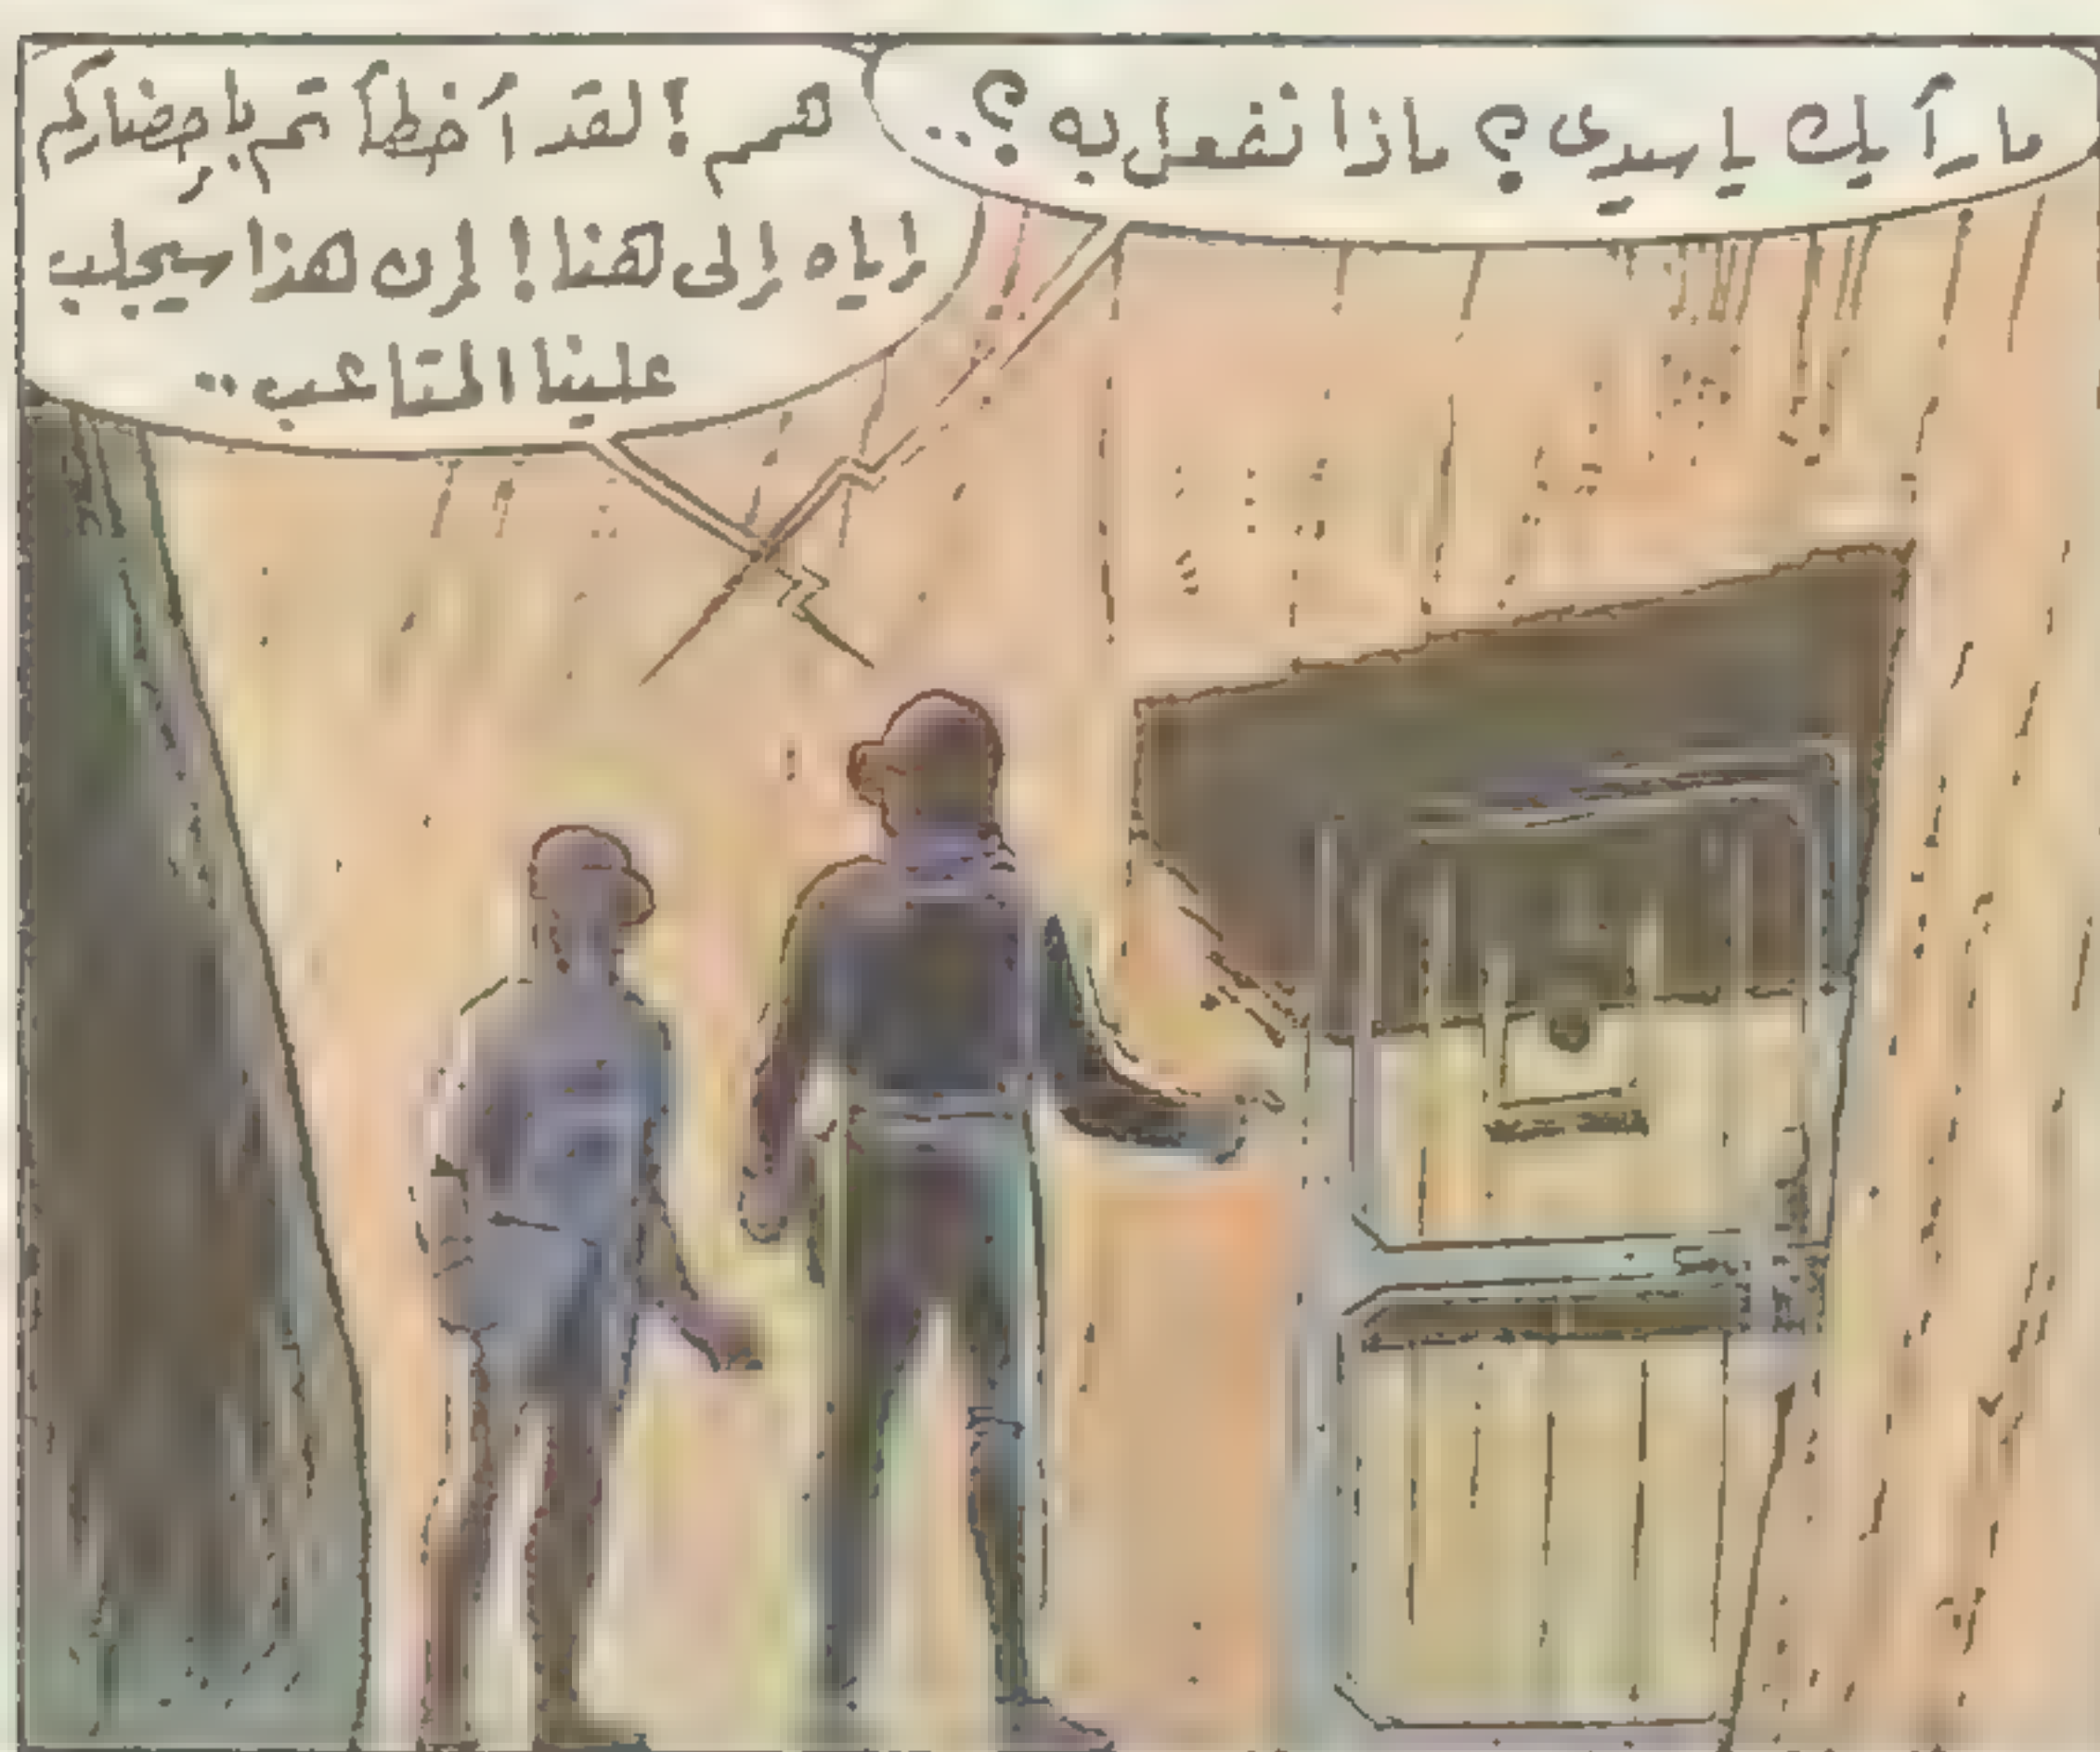 ما رأيك يا سيدى ؟ ماذا نفعل به ؟..
هم ! لقد أخطأتم بإحضاركم
إياه إلى هنا ! إن هذا سيجلب
علينا المتاعب ..